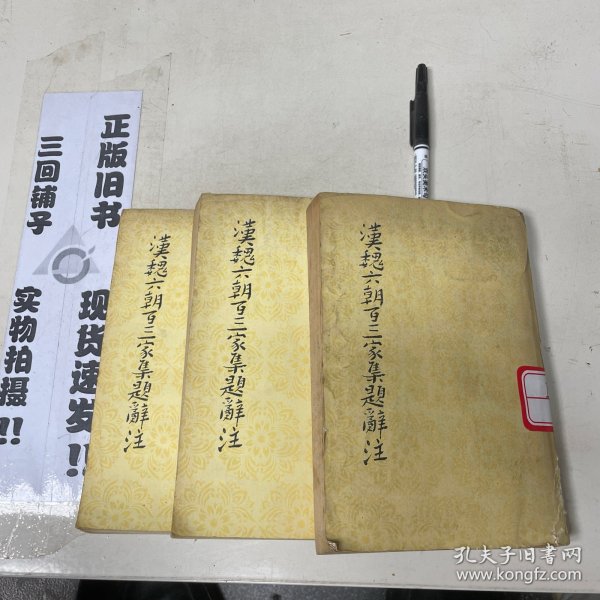 正版旧书
三回铺子
现货速发!!
实物拍摄!!
漢魏六朝百三家集題辭注
漢魏六朝百三家集題辭注
漢魏六朝百三家集題辭注
孔夫子旧书网
www.kongfz.com